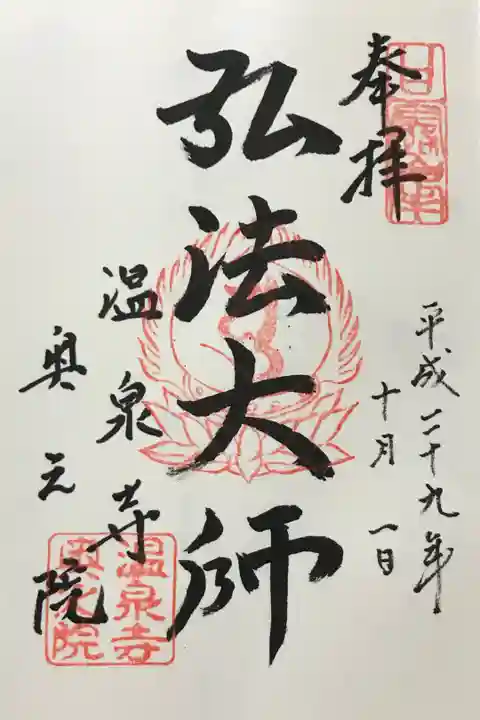 奉拝
平成二十九年
十月一日
弘法大師
温泉寺
奥之院
温泉寺
奥之院